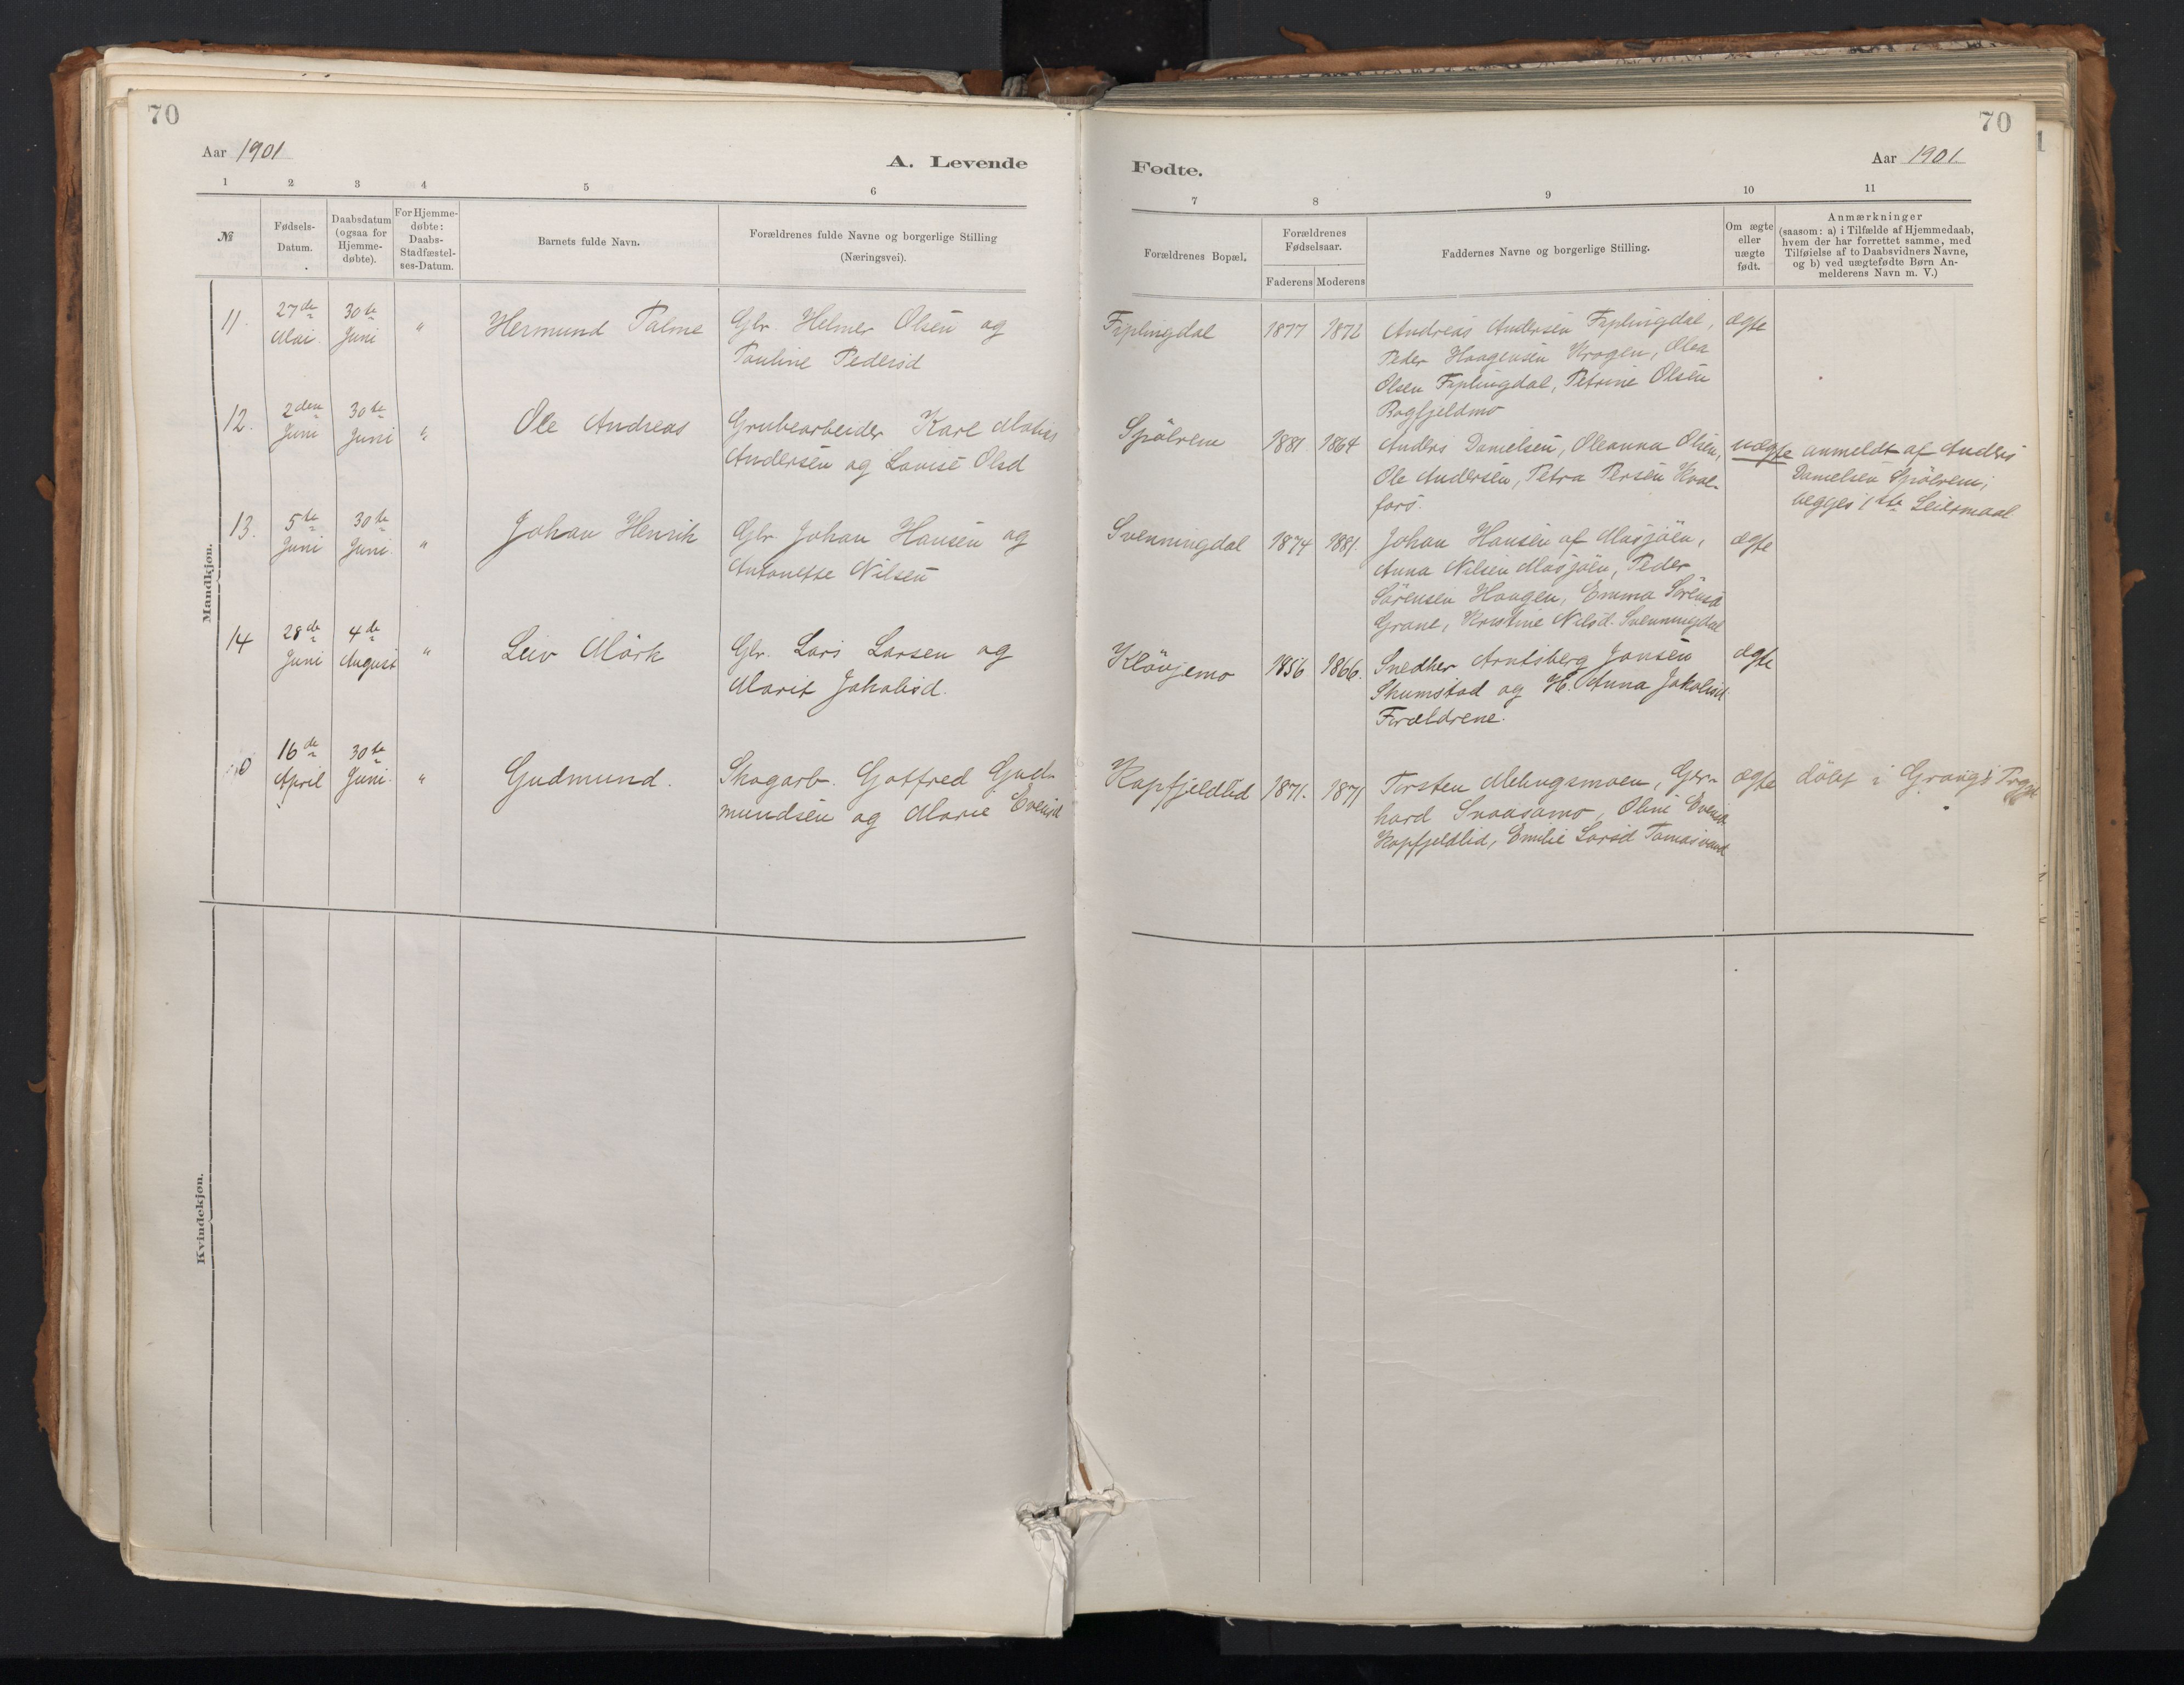 70
70
Aar 1901
A. Levende
Fødte.
Aar 1901.
1 2 3 4 5 6
7 8 9 10 11
№
Fødsels-
Datum.
Daabsdatum
(ogsaa for
Hjemme-
døbte).
For Hjemme-
døbte:
Daabs-
Stadfæstel-
ses-Datum.
Barnets fulde Navn.
Forældrenes fulde Navne og borgerlige Stilling
(Næringsvei).
Forældrenes Bopæl.
Forældrenes
Fødselsaar.
Faderens Moderens
Faddernes Navne og borgerlige Stilling.
Om ægte
eller
uægte
født.
Anmærkninger
(saasom: a) i Tilfælde af Hjemmedaab,
hvem der har forrettet samme, med
Tilføielse af to Daabsvidners Navne,
og b) ved uægtefødte Børn An-
melderens Navn m. V.)
Mandkjøn.
11. 27de Mai. 30te Juni " Hermund Palme
Gbr. Helmer Olsen og
Pauline Pedersd
Fiplingdal 1877 1872
Andreas Andersen Fiplingdal,
Peder Haagensen Krogen, Olea
Olsen Fiplingdal, Petrine Olsen
Bogfjeldmo
ægte
12. 2den Juni 30te Juni " Ole Andreas
Grubearbeider Karl Matias
Andersen og Lovise Olsd
Spölrem 1881 1864
Anders Danielsen, Oleanna Olsen,
Ole Andersen, Petra Persen Kval-
fors.
uægte
anmeldt af Anders
Danielsen Spölrem;
begges 1ste Leiermaal
13. 5te Juni 30te Juni. " Johan Henrik
Gbr. Johan Hansen og
Antonette Nilsen
Svenningdal 1874 1881.
Johan Hansen af Mosjöen,
Anna Nilsen Mosjöen, Peder
Sörensen Haugen, Emma Sörensd
Grane, Kristine Nilsd. Svenningdal
ægte
14 28de Juni 4de August " Leiv Mörk
Gbr. Lars Larsen og
Marit Jakobsd.
Klövjemo 1856 1866.
Snedker Arntsberg Jonsen
Skumstad og H. Anna Jakobsd.
Forældrene.
ægte
0 16de April 30te Juni. " Gudmund.
Skogarb. Gotfred Gud-
mundsen og Marie Evensd
Kapfjeldlid 1871. 1871
Torsten Mebugsmoen, Ger-
hard Snaasamo, Oline Evensd.
Kapfjeldlid, Emilie Larsd Tomasvand
ægte
döbt i
Kvindekjøn.